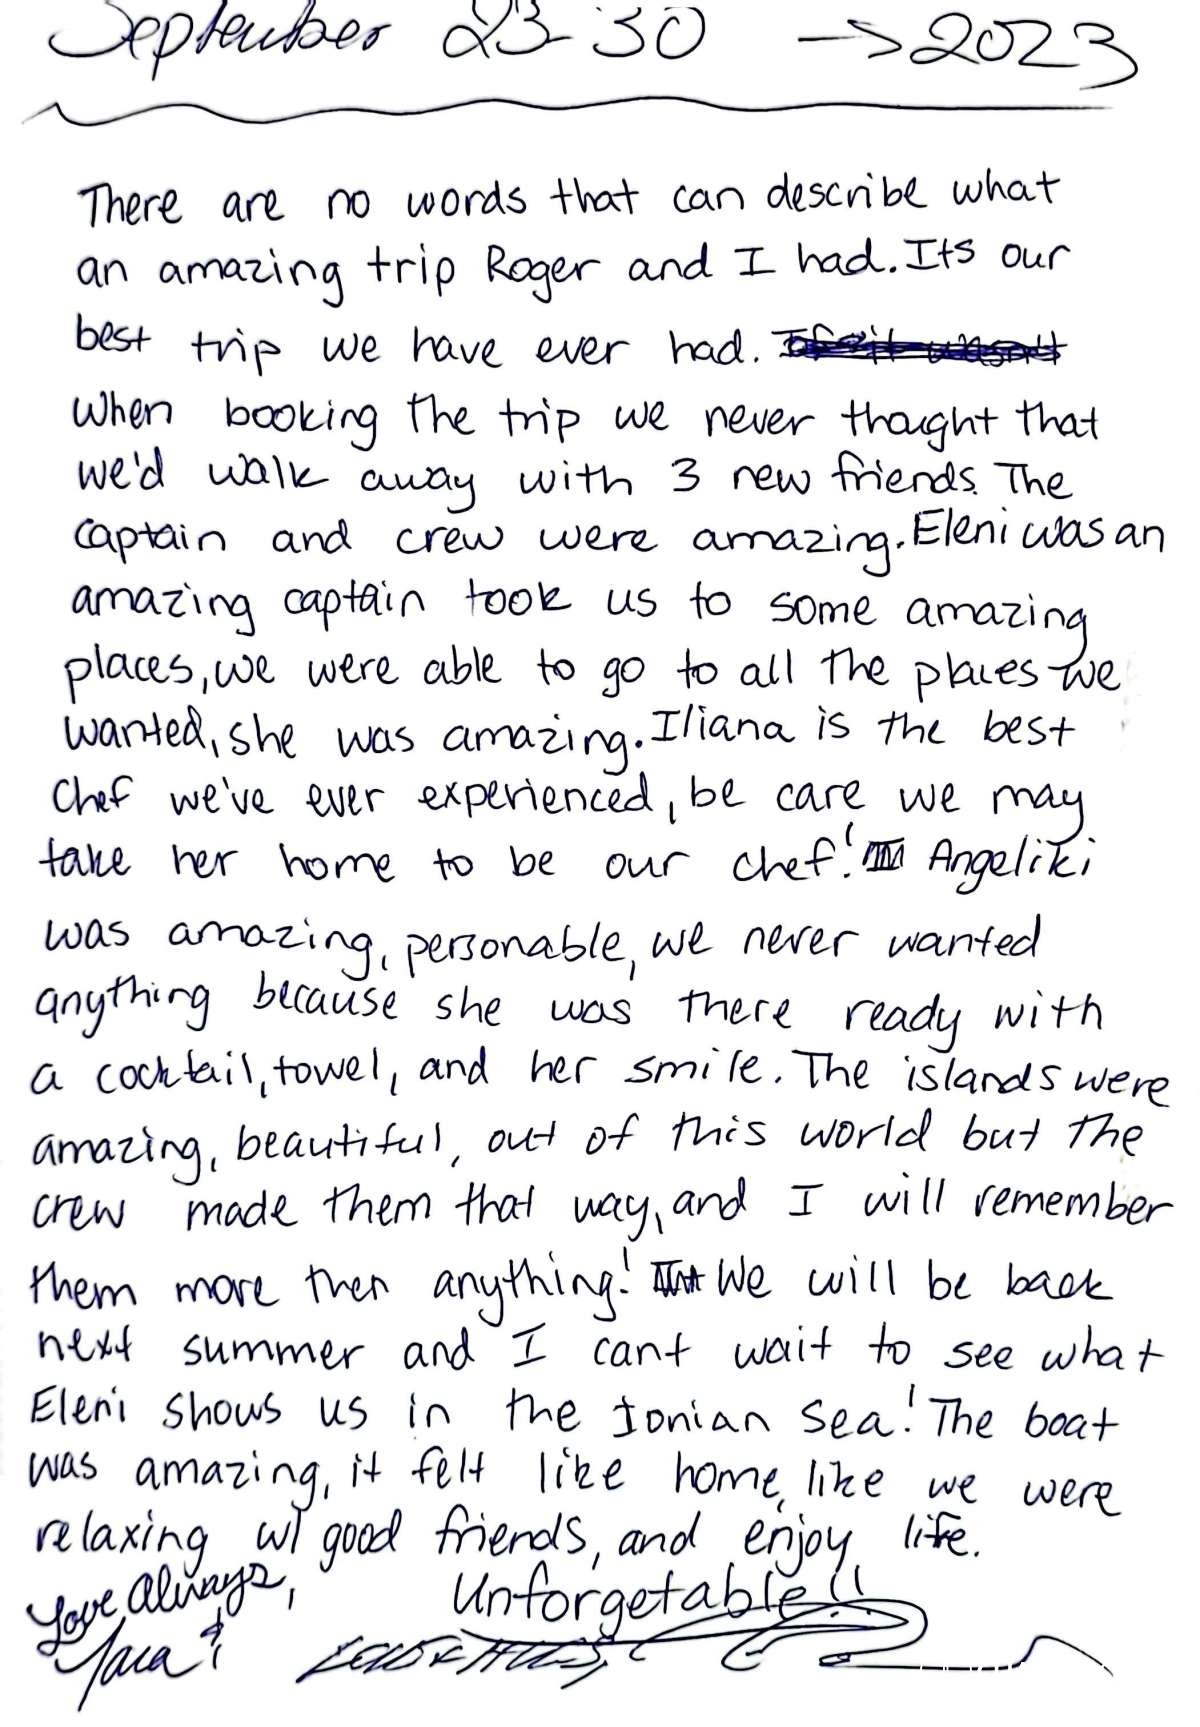 September 23-30 → 2023
There are no words that can describe what
an amazing trip Roger and I had. Its our
best trip we have ever had. If it wasn't
When booking the trip we never thought that
we'd walk away with 3 new friends. The
captain and crew were amazing. Eleni was an
amazing captain took us to some amazing
places, we were able to go to all the places we
wanted, she was amazing. Iliana is the best
chef we've ever experienced, be care we may
take her home to be our chef! Angeliki
was amazing, personable, we never wanted
anything because she was there ready with
a cocktail, towel, and her smile. The islands were
amazing, beautiful, out of this world but the
crew made them that way, and I will remember
them more then anything! We will be back
next summer and I cant wait to see what
Eleni shows us in the Ionian Sea! The boat
was amazing, it felt like home, like we were
relaxing w/ good friends, and enjoy life.
Unforgetable!!
Love Always,
&